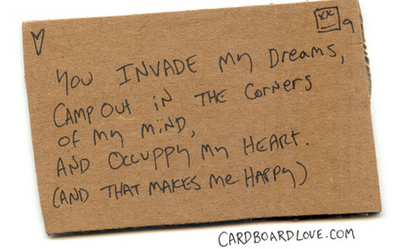 9
You INVADE my Dreams,
CAMP Out iN THE CORNERS
of my MiND,
AND OCCUPPY my HEART.
(AND THAT MAKES me HAPPY)
CARDBOARDLOVE.COM